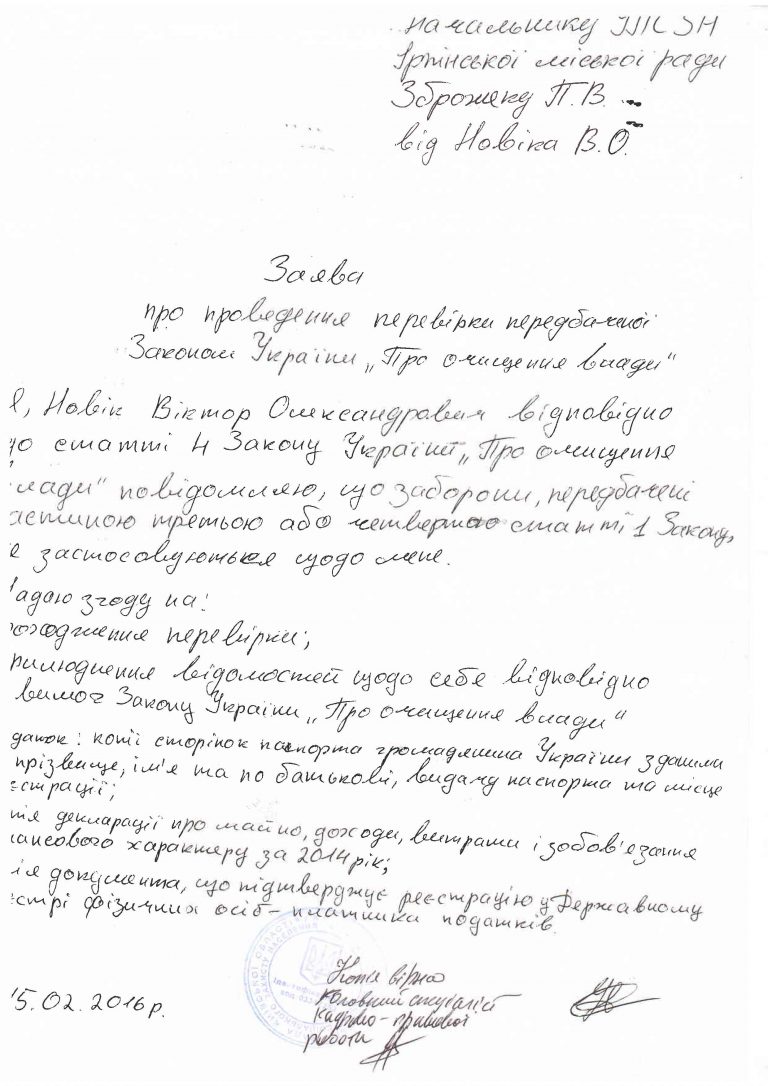 начальнику
Ірпінської міської ради
Зброжеку П.В.
від Новіка В.О.
Заява
про проведення перевірки передбаченої
Законом України „Про очищення влади“
Я, Новік Віктор Олександрович відповідно
до статті 4 Закону України „Про очищення
лади“ повідомляю, що заборони, передбачені
астиною третьою або четвертою статті 1 Закону,
е застосовуються щодо мене.
адаю згоду на:
роходження перевірки;
рилюднення відомостей щодо себе відповідно
вимог Закону України „Про очищення влади“
даток: копії сторінок паспорта громадянина України з даними
прізвище, ім'я та по батькові, видачу паспорта та місце
єстрації;
пія декларації про майно, доходи, витрати і зобов'язання
нансового характеру за 2014 рік;
ія документа, що підтверджує реєстрацію у Державному
єстрі фізичних осіб – платників податків.
15.02.2016 р.
Копія вірна
головний спеціаліст
кадрово-правової
роботи